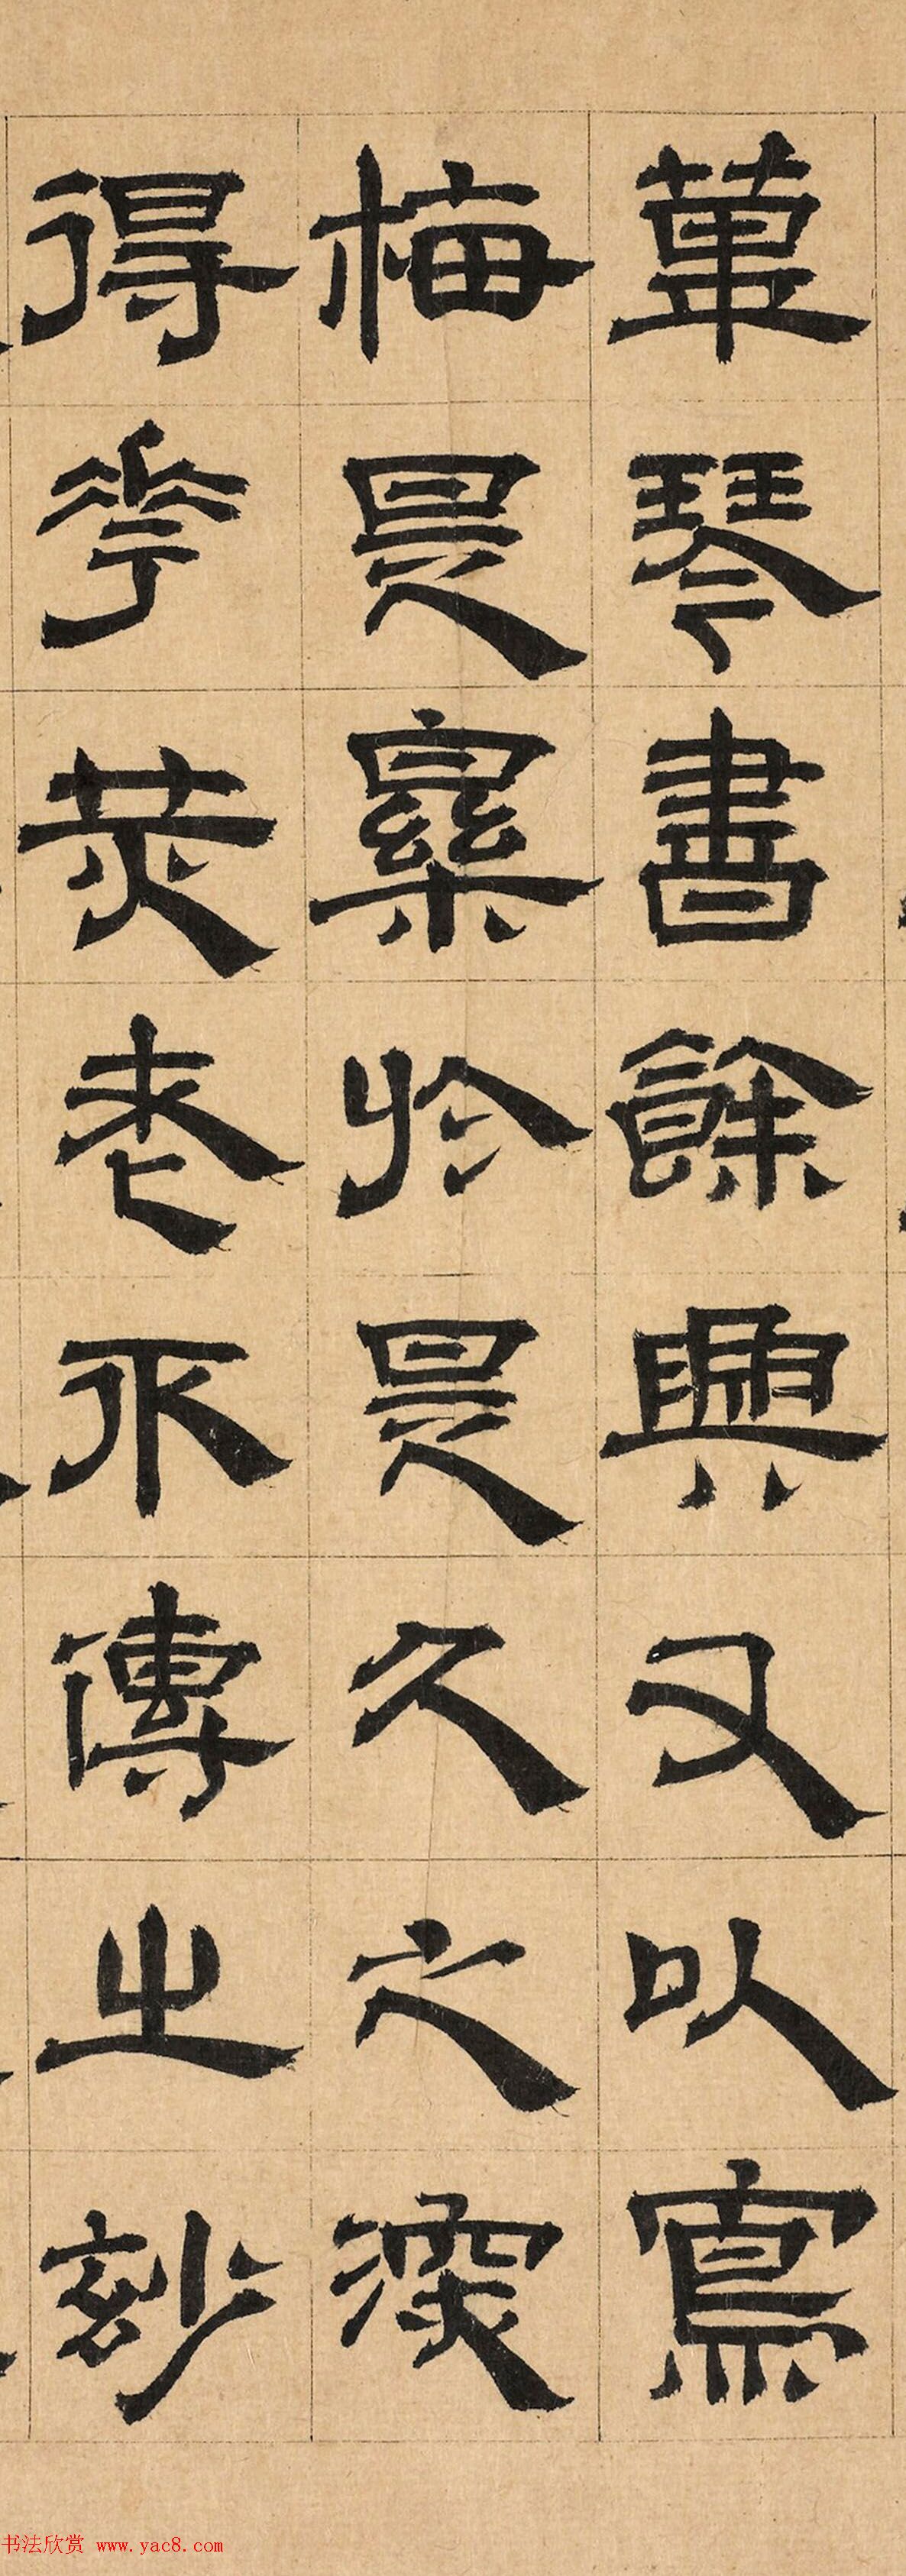 琴書餘興又以寫
梅是累於是久之深
得華炗老不傳之玅
书法欣赏 www.yac8.com